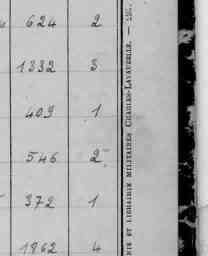 624 2
1332 3
409 1
546 2
372 1
1962 4
RIE ET LIBRAIRIE MILITAIRES CHARLES-LAVAUZELLE. — 151.